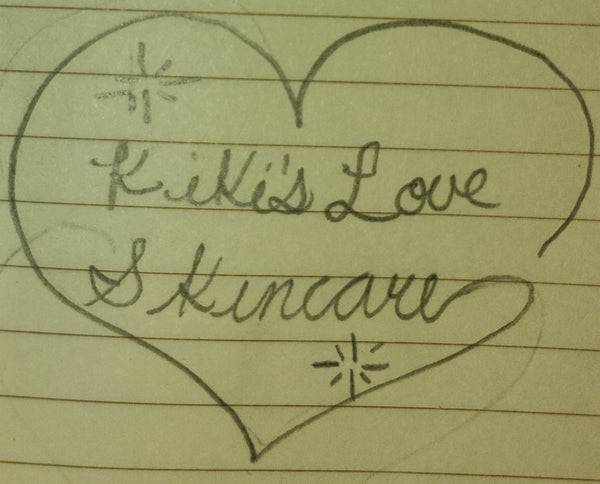 KiKi's Love
Skincare